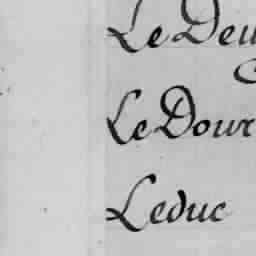 Le Deu
Le Dour
Leduc